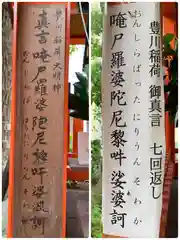 豊川稲荷大明神
真言 唵尸羅婆陀尼黎吽娑婆訶
豊川稲荷 御真言 七回返し
おんしらばったにりうんそわか
唵尸羅婆陀尼黎吽娑婆訶